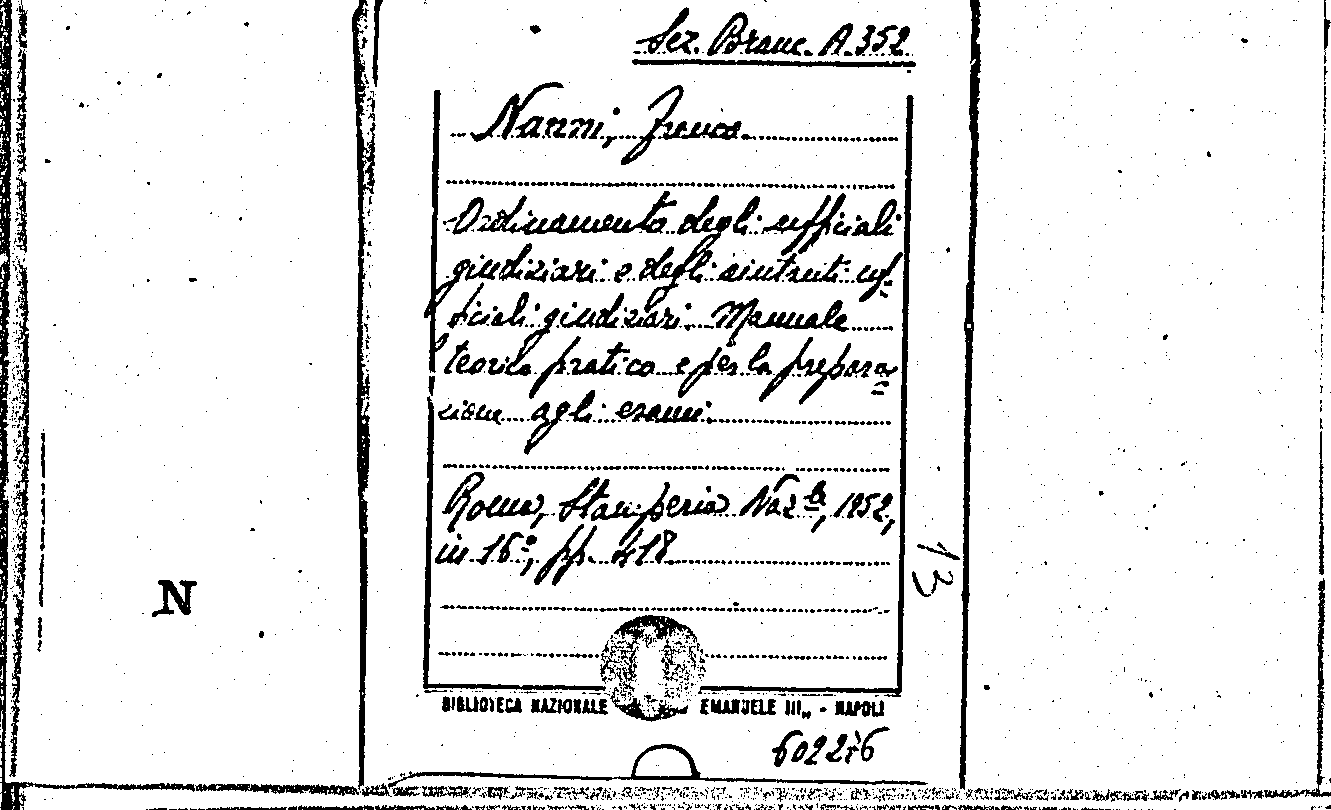 Sez. Branc. A 352
Nanni, Franco.
Ordinamento degli ufficiali
giudiziari e degli aiutanti uf-
ficiali giudiziari. Manuale
teorico pratico e per la prepara=
zione agli esami.
Roma, Stamperia Naz.le, 1952,
in 16°, pp. 418
13
N
BIBLIOTECA NAZIONALE EMANUELE III„ - NAPOLI